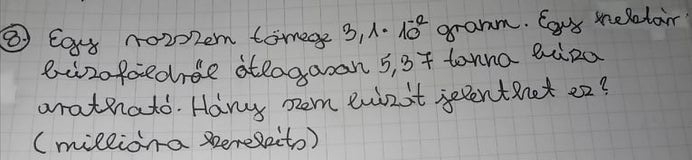 8. Egy rozszem tömege 3,1 · 10⁻² gramm. Egy hektár
búzaföldről átlagosan 5,37 tonna búza
aratható. Hány szem búzát jelenthet ez?
(millióra kerekíts)